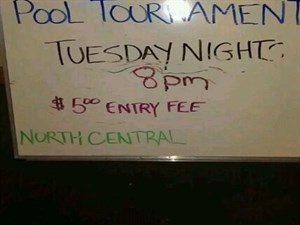 POOL TOURNAMENT
TUESDAY NIGHTS
8pm
$5.00 ENTRY FEE
NORTH CENTRAL